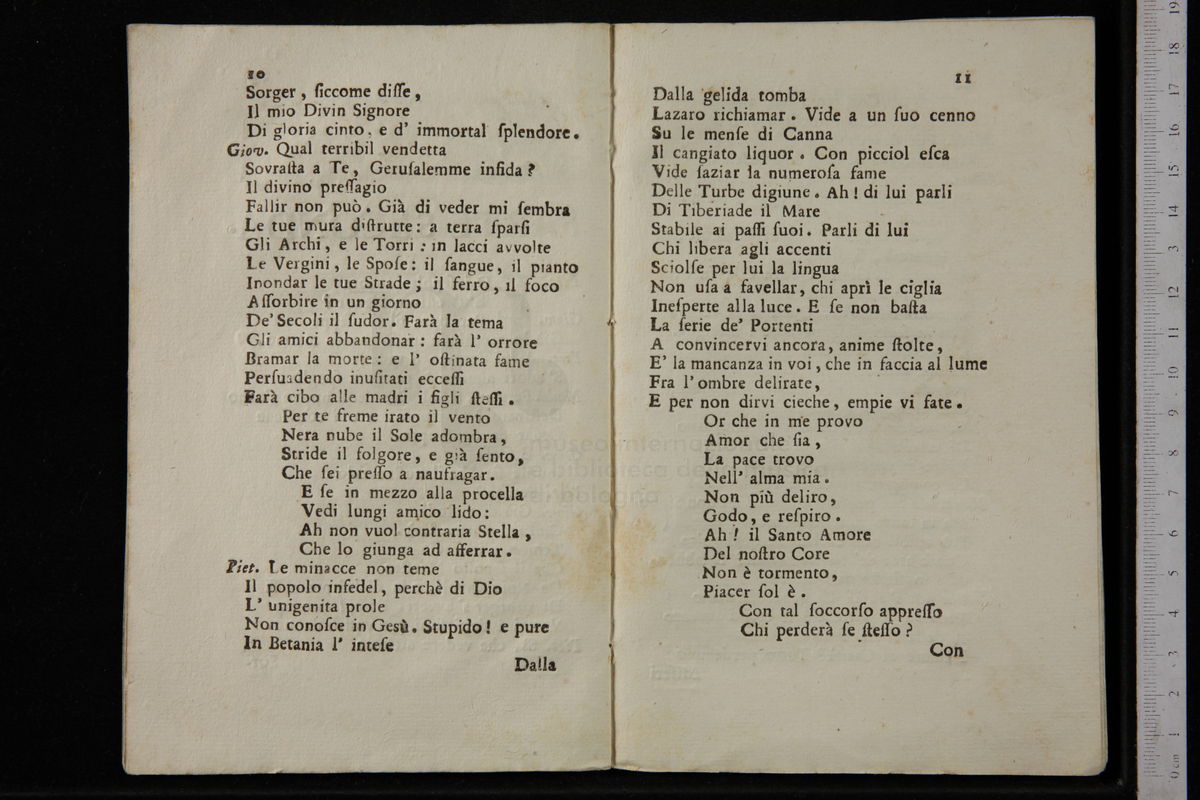 10
Sorger, ſiccome diſſe,
Il mio Divin Signore
Di gloria cinto, e d' immortal ſplendore.
Giov. Qual terribil vendetta
Sovraſta a Te, Geruſalemme infida?
Il divino preſſagio
Fallir non può. Già di veder mi ſembra
Le tue mura diſtrutte: a terra ſparſi
Gli Archi, e le Torri: in lacci avvolte
Le Vergini, le Spoſe: il ſangue, il pianto
Inondar le tue Strade; il ferro, il foco
Aſſorbire in un giorno
De' Secoli il ſudor. Farà la tema
Gli amici abbandonar: farà l' orrore
Bramar la morte: e l' oſtinata fame
Perſuadendo inuſitati ecceſſi
Farà cibo alle madri i figli ſteſſi.
Per te freme irato il vento
Nera nube il Sole adombra,
Stride il folgore, e già ſento,
Che ſei preſſo a naufragar.
E ſe in mezzo alla procella
Vedi lungi amico lido:
Ah non vuol contraria Stella,
Che lo giunga ad afferrar.
Piet. Le minacce non teme
Il popolo infedel, perchè di Dio
L' unigenita prole
Non conoſce in Gesù. Stupido! e pure
In Betania l' inteſe
Dalla
11
Dalla gelida tomba
Lazaro richiamar. Vide a un ſuo cenno
Su le menſe di Canna
Il cangiato liquor. Con picciol eſca
Vide ſaziar la numeroſa fame
Delle Turbe digiune. Ah! di lui parli
Di Tiberiade il Mare
Stabile ai paſſi ſuoi. Parli di lui
Chi libera agli accenti
Sciolſe per lui la lingua
Non uſa a favellar, chi aprì le ciglia
Ineſperte alla luce. E ſe non baſta
La ſerie de' Portenti
A convincervi ancora, anime ſtolte,
E' la mancanza in voi, che in faccia al lume
Fra l' ombre delirate,
E per non dirvi cieche, empie vi fate.
Or che in me provo
Amor che ſia,
La pace trovo
Nell' alma mia.
Non più deliro,
Godo, e reſpiro.
Ah! il Santo Amore
Del noſtro Core
Non è tormento,
Piacer ſol è.
Con tal ſoccorſo appreſſo
Chi perderà ſe ſteſſo?
Con